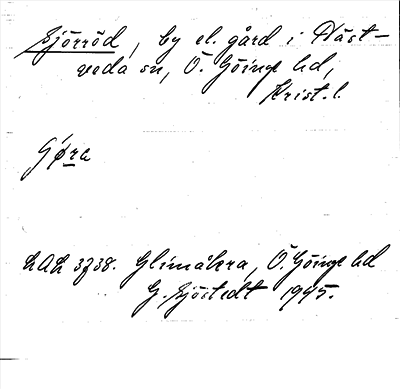 Sjörröd, by el. gård i Häst-
veda sn, Ö. Göinge hd,
Krist. l.
Gøra
LAL 3738. Glimåkra, Ö. Göinge hd
G. Sjöstedt 1945.